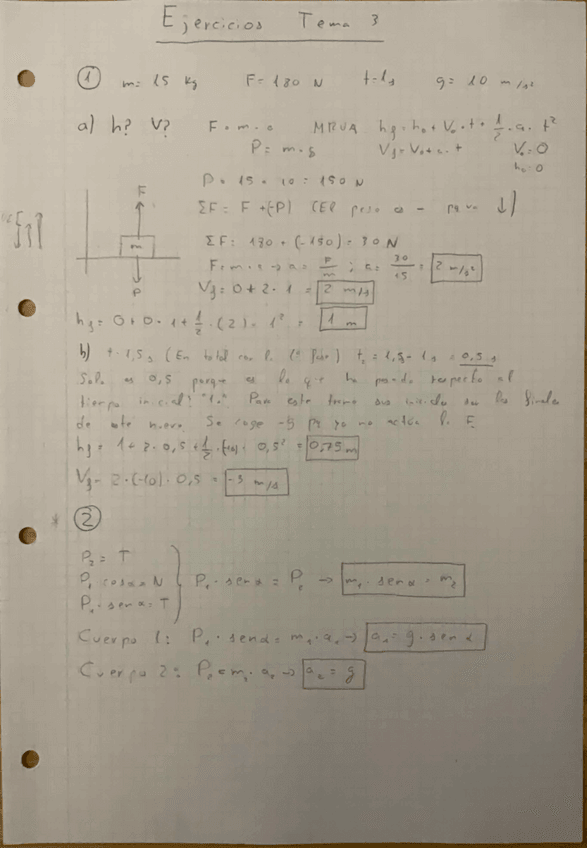 Ejercicios Tema 3
① m= 15 kg F= 180 N t=1s g= 10 m/s²
a) h? V? F=m·a MRUA h_f=h_0+V_0·t+½·a·t²
P=m·g V_f=V_0+a·t V_0=0
h_0=0
P=15·10=150 N
ΣF= F+(-P) (El peso es - para ↓)
F
m
P
ΣF= 180+(-150)=30N
F=m·a→a=F/m; a=30/15=2 m/s²
V_f=0+2·1=2 m/s
h_f=0+0·1+½·(2)·1²=1 m
b) t=1,5s (En total con la 1ª fase) t_2=1,5-1s=0,5s
Solo es 0,5 porque es lo que ha pasado respecto al
tiempo inicial: "1". Para este tramo sus iniciales son los finales
de este nuevo. Se coge -g pq ya no actúa la F.
h_f=1+2·0,5+½·(-10)·0,5²=0,75m
V_f=2+(-10)·0,5=-3 m/s
* ②
P_2=T
P_1 cosα=N P_1·senα=P_2→m_1·senα=m_2
P_1·senα=T
Cuerpo 1: P_1·senα=m_1·a_1→a_1=g·senα
Cuerpo 2: P_2=m_2·a_2→a_2=g